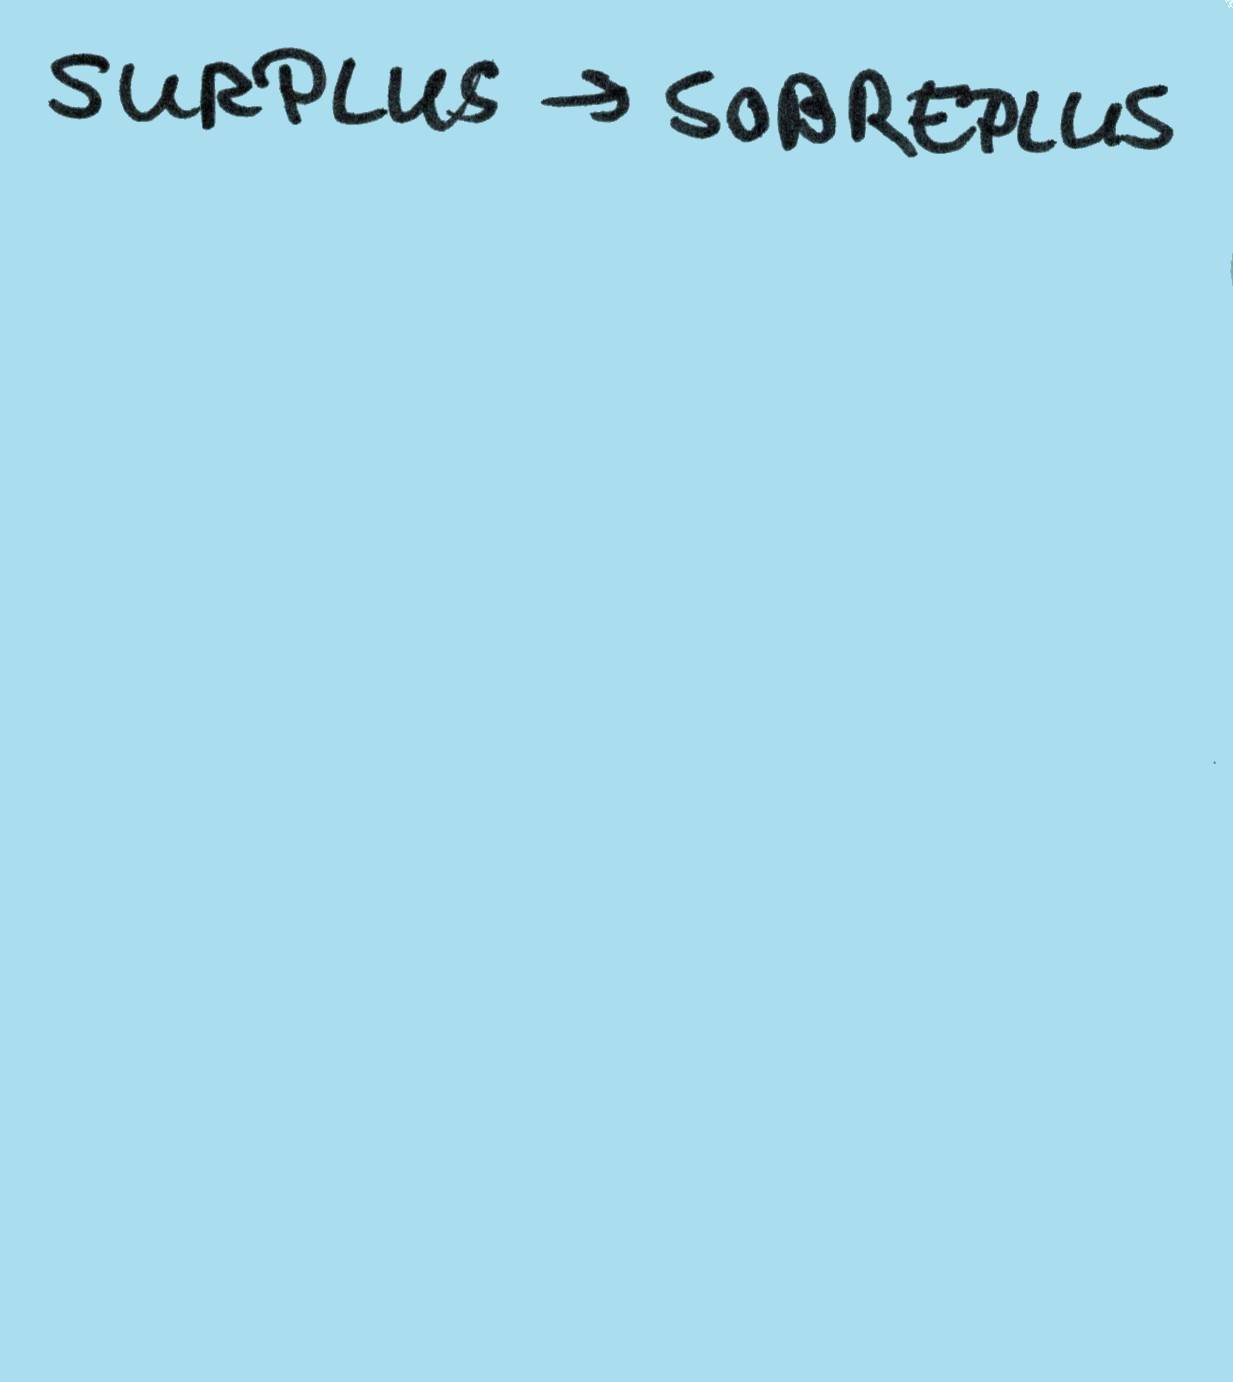 SURPLUS → SOBREPLUS